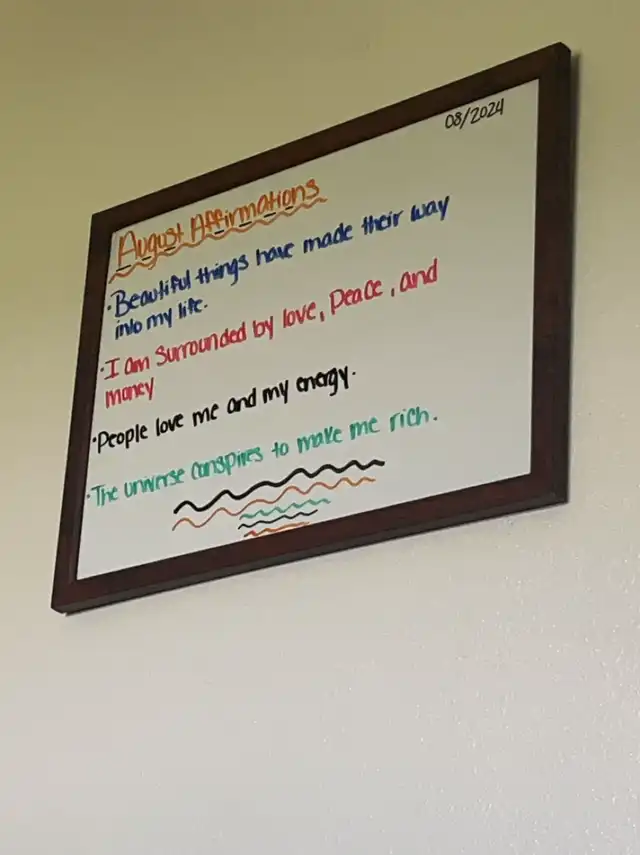 08/2024
August Affirmations
·Beautiful things have made their way
into my life.
·I am surrounded by love, peace, and
money
·People love me and my energy.
·The universe conspires to make me rich.